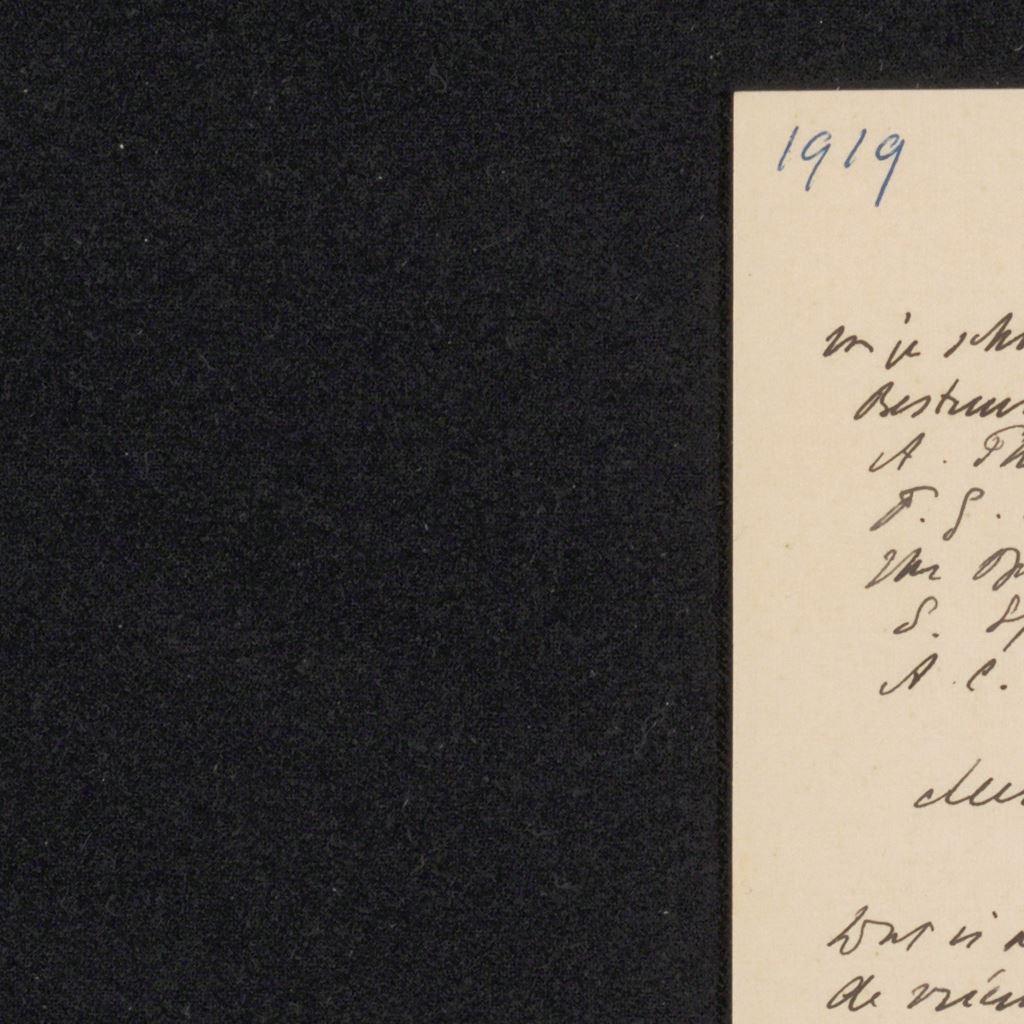 1919
in je schr
Bestuur
A. Th
F. G.
S. Sp
A. C.
Wat is
de vrien